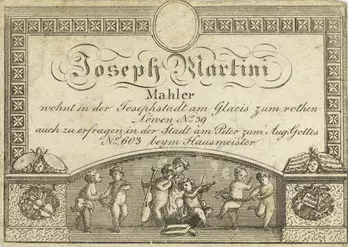 Joseph Martini
Mahler
wohnt in der Josephstadt am Glacis zum rothen
Löwen No. 39
auch zu erfragen in der Stadt am Peter zum Aug. Gottes
No. 603 beym Hausmeister